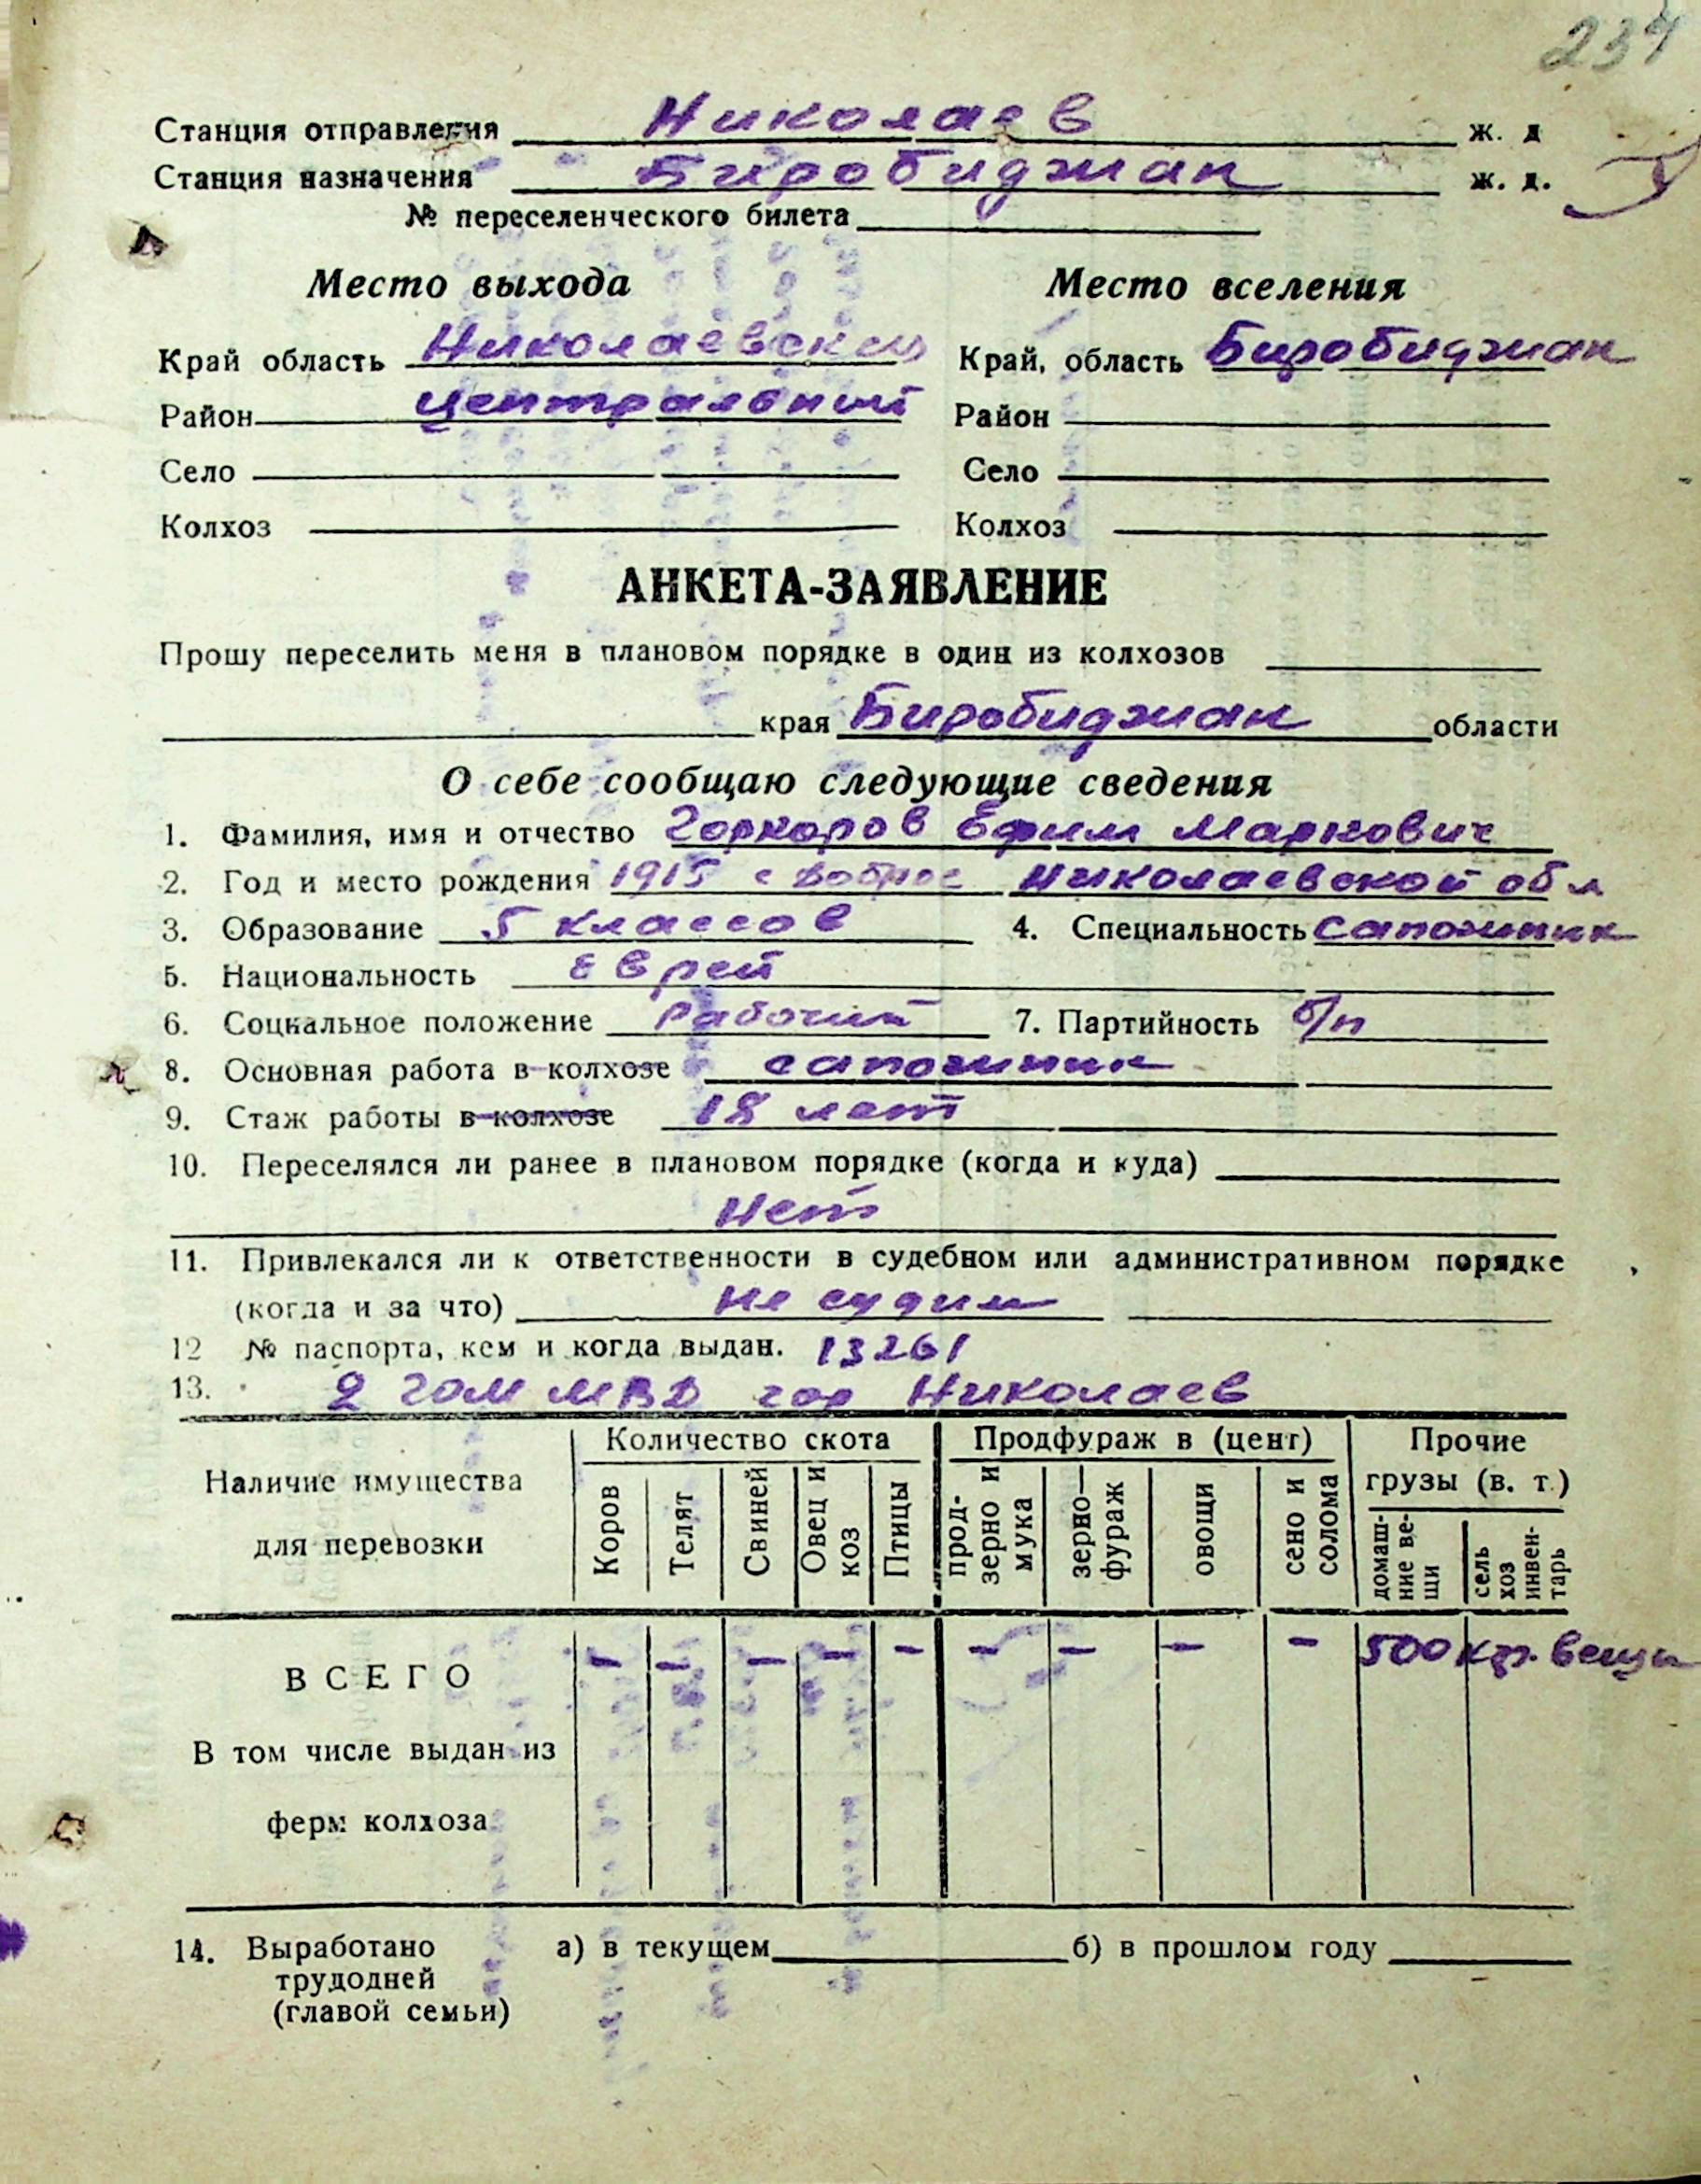 234
Станция отправления Николаев ж. д
Станция назначения Биробиджан ж. д.
№ переселенческого билета
Место выхода Место вселения
Край область Николаевский Край, область Биробиджан
Район Центральный Район
Село Село
Колхоз Колхоз
АНКЕТА-ЗАЯВЛЕНИЕ
Прошу переселить меня в плановом порядке в один из колхозов
края Биробиджан области
О себе сообщаю следующие сведения
1. Фамилия, имя и отчество Горкоров Ефим Маркович
2. Год и место рождения 1915 с Николаевской обл
3. Образование 5 классов 4. Специальность сапожник
5. Национальность Еврей
6. Социальное положение Рабочий 7. Партийность б/п
8. Основная работа в колхозе сапожник
9. Стаж работы в колхозе 18 лет
10. Переселялся ли ранее в плановом порядке (когда и куда)
Нет
11. Привлекался ли к ответственности в судебном или административном порядке
(когда и за что) Не судим
12 № паспорта, кем и когда выдан. 13261
13. 2 ГОМ МВД гор Николаев
Наличие имущества для перевозки
Количество скота Продфураж в (цент) Прочие грузы (в. т.)
Коров Телят Свиней Овец и коз Птицы прод-зерно и мука зерно—фураж овощи сено и солома домаш-ние ве-щи сель хоз инвен-тарь
ВСЕГО — — — — — — — — — 500 кгр. вещи
В том числе выдан из
ферм колхоза
14. Выработано а) в текущем б) в прошлом году
трудодней
(главой семьи)